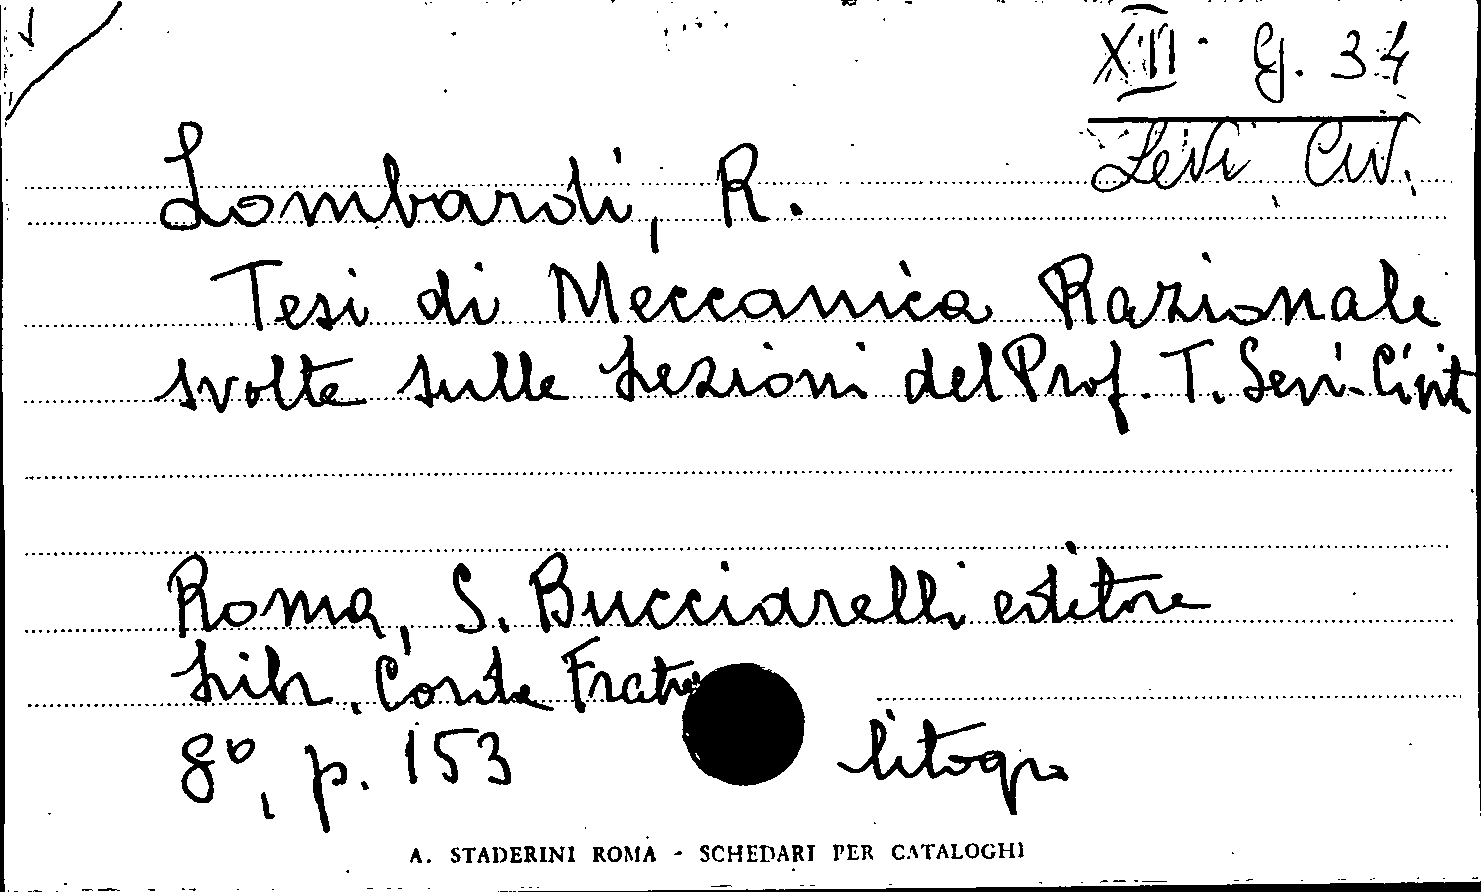 XII G. 34
Levi Civ.
Lombardi, R.
Tesi di Meccanica Razionale
svolte sulle Lezioni del Prof. T. Levi-Civit
Roma, S. Bucciarelli editore
Libr. Conte Frat
8°, p. 153 litogr
A. STADERINI ROMA - SCHEDARI PER CATALOGHI